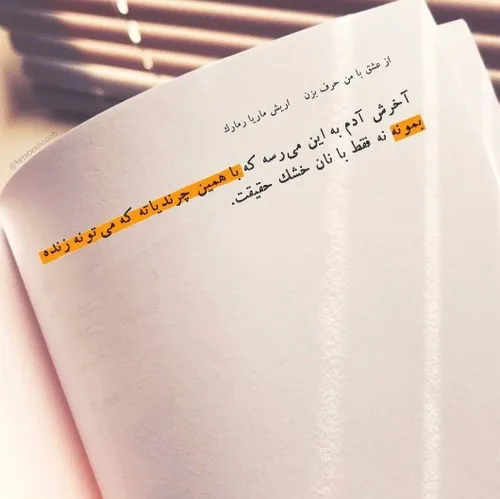 از عشق با من حرف بزن    اریش ماریا رمارک
آخرش آدم به این می‌رسه که با همین چرندیاته که می‌تونه زنده
بمونه نه فقط با نان خشک حقیقت.